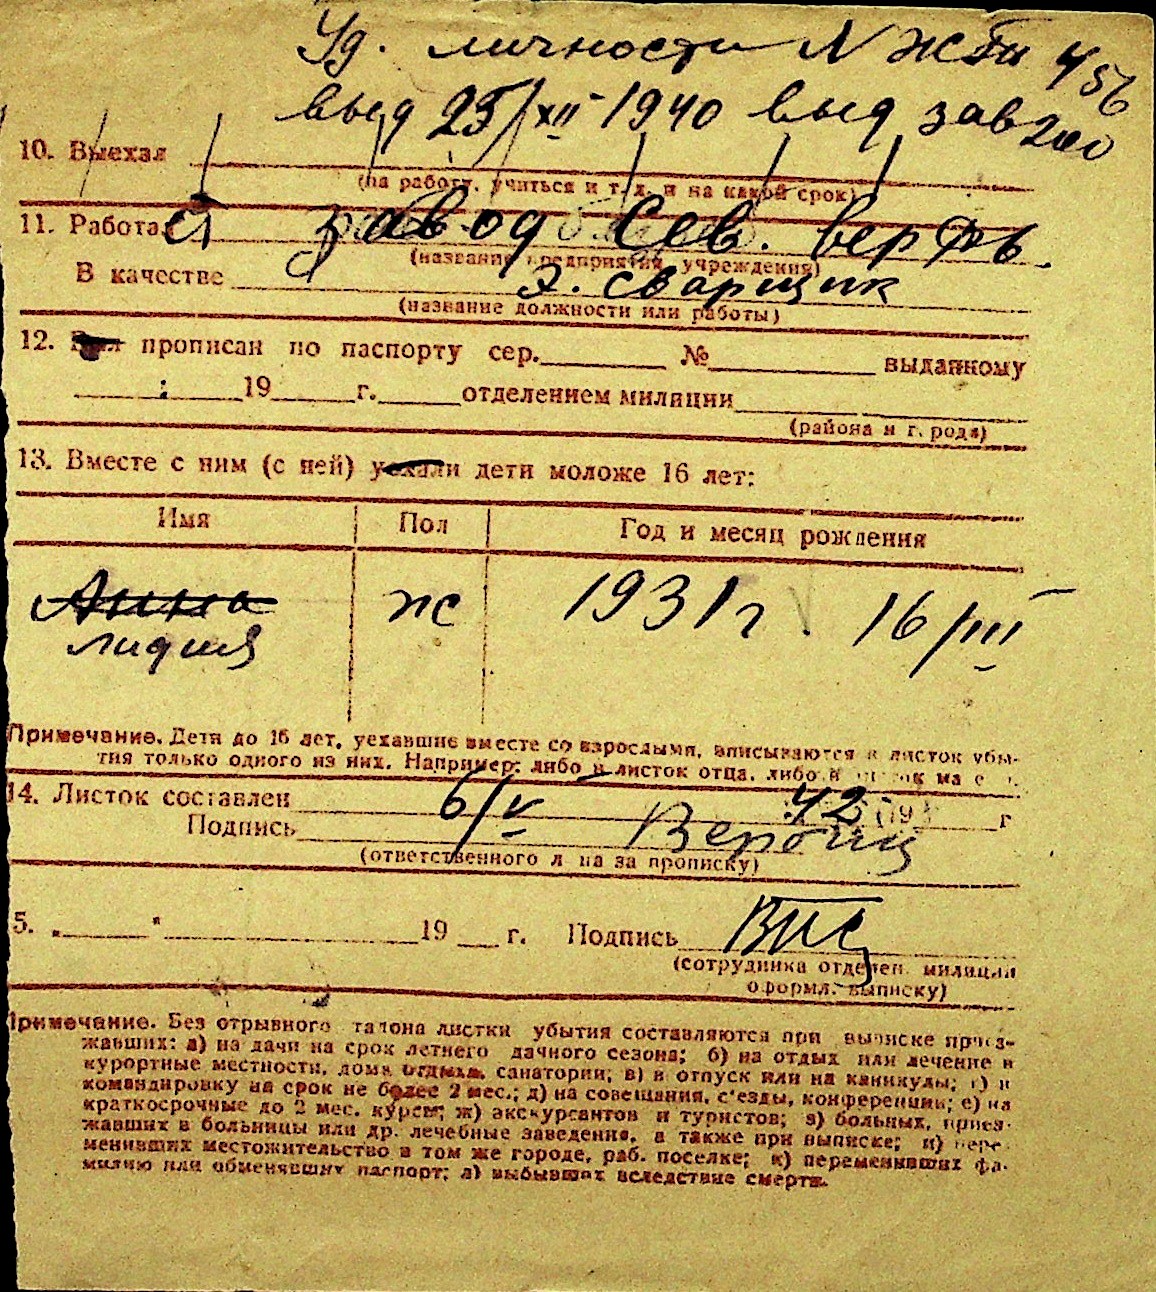 Уд. личности N ЖБи 456
выд 25/XII-1940 выд завгоо
10. Выехал
(на работу, учиться и т. д. и на какой срок)
11. Работает завод Сев. верфь.
(название предприятия, учреждения)
В качестве э. сварщик
(название должности или работы)
12. Был прописан по паспорту сер. № выданному
19 г. отделением милиции
(района и города)
13. Вместе с ним (с ней) уехали дети моложе 16 лет:
Имя Пол Год и месяц рождения
Анна
Лидия ж 1931 г. 16/III
Примечание. Дети до 16 лет, уехавшие вместе со взрослыми, вписываются в листок убы-
тия только одного из них. Например: либо в листок отца, либо в листок
14. Листок составлен 6/V 42 19 г
Подпись
(ответственного лица за прописку)
5. „ " 19 г. Подпись
(сотрудника отделен. милиции
оформл. выписку)
Примечание. Без отрывного талона листки убытия составляются при выписке приез-
жавших: а) на дачи на срок летнего дачного сезона; б) на отдых или лечение в
курортные местности, дома отдыха, санатории; в) в отпуск или на каникулы; г) в
командировку на срок не более 2 мес.; д) на совещания, с'езды, конференции; е) на
краткосрочные до 2 мес. курсы; ж) экскурсантов и туристов; з) больных, приез-
жавших в больницы или др. лечебные заведения, а также при выписке; и) пере-
менивших местожительство в том же городе, раб. поселке; к) переменивших фа-
милию или обменявших паспорт; л) выбывших вследствие смерти.